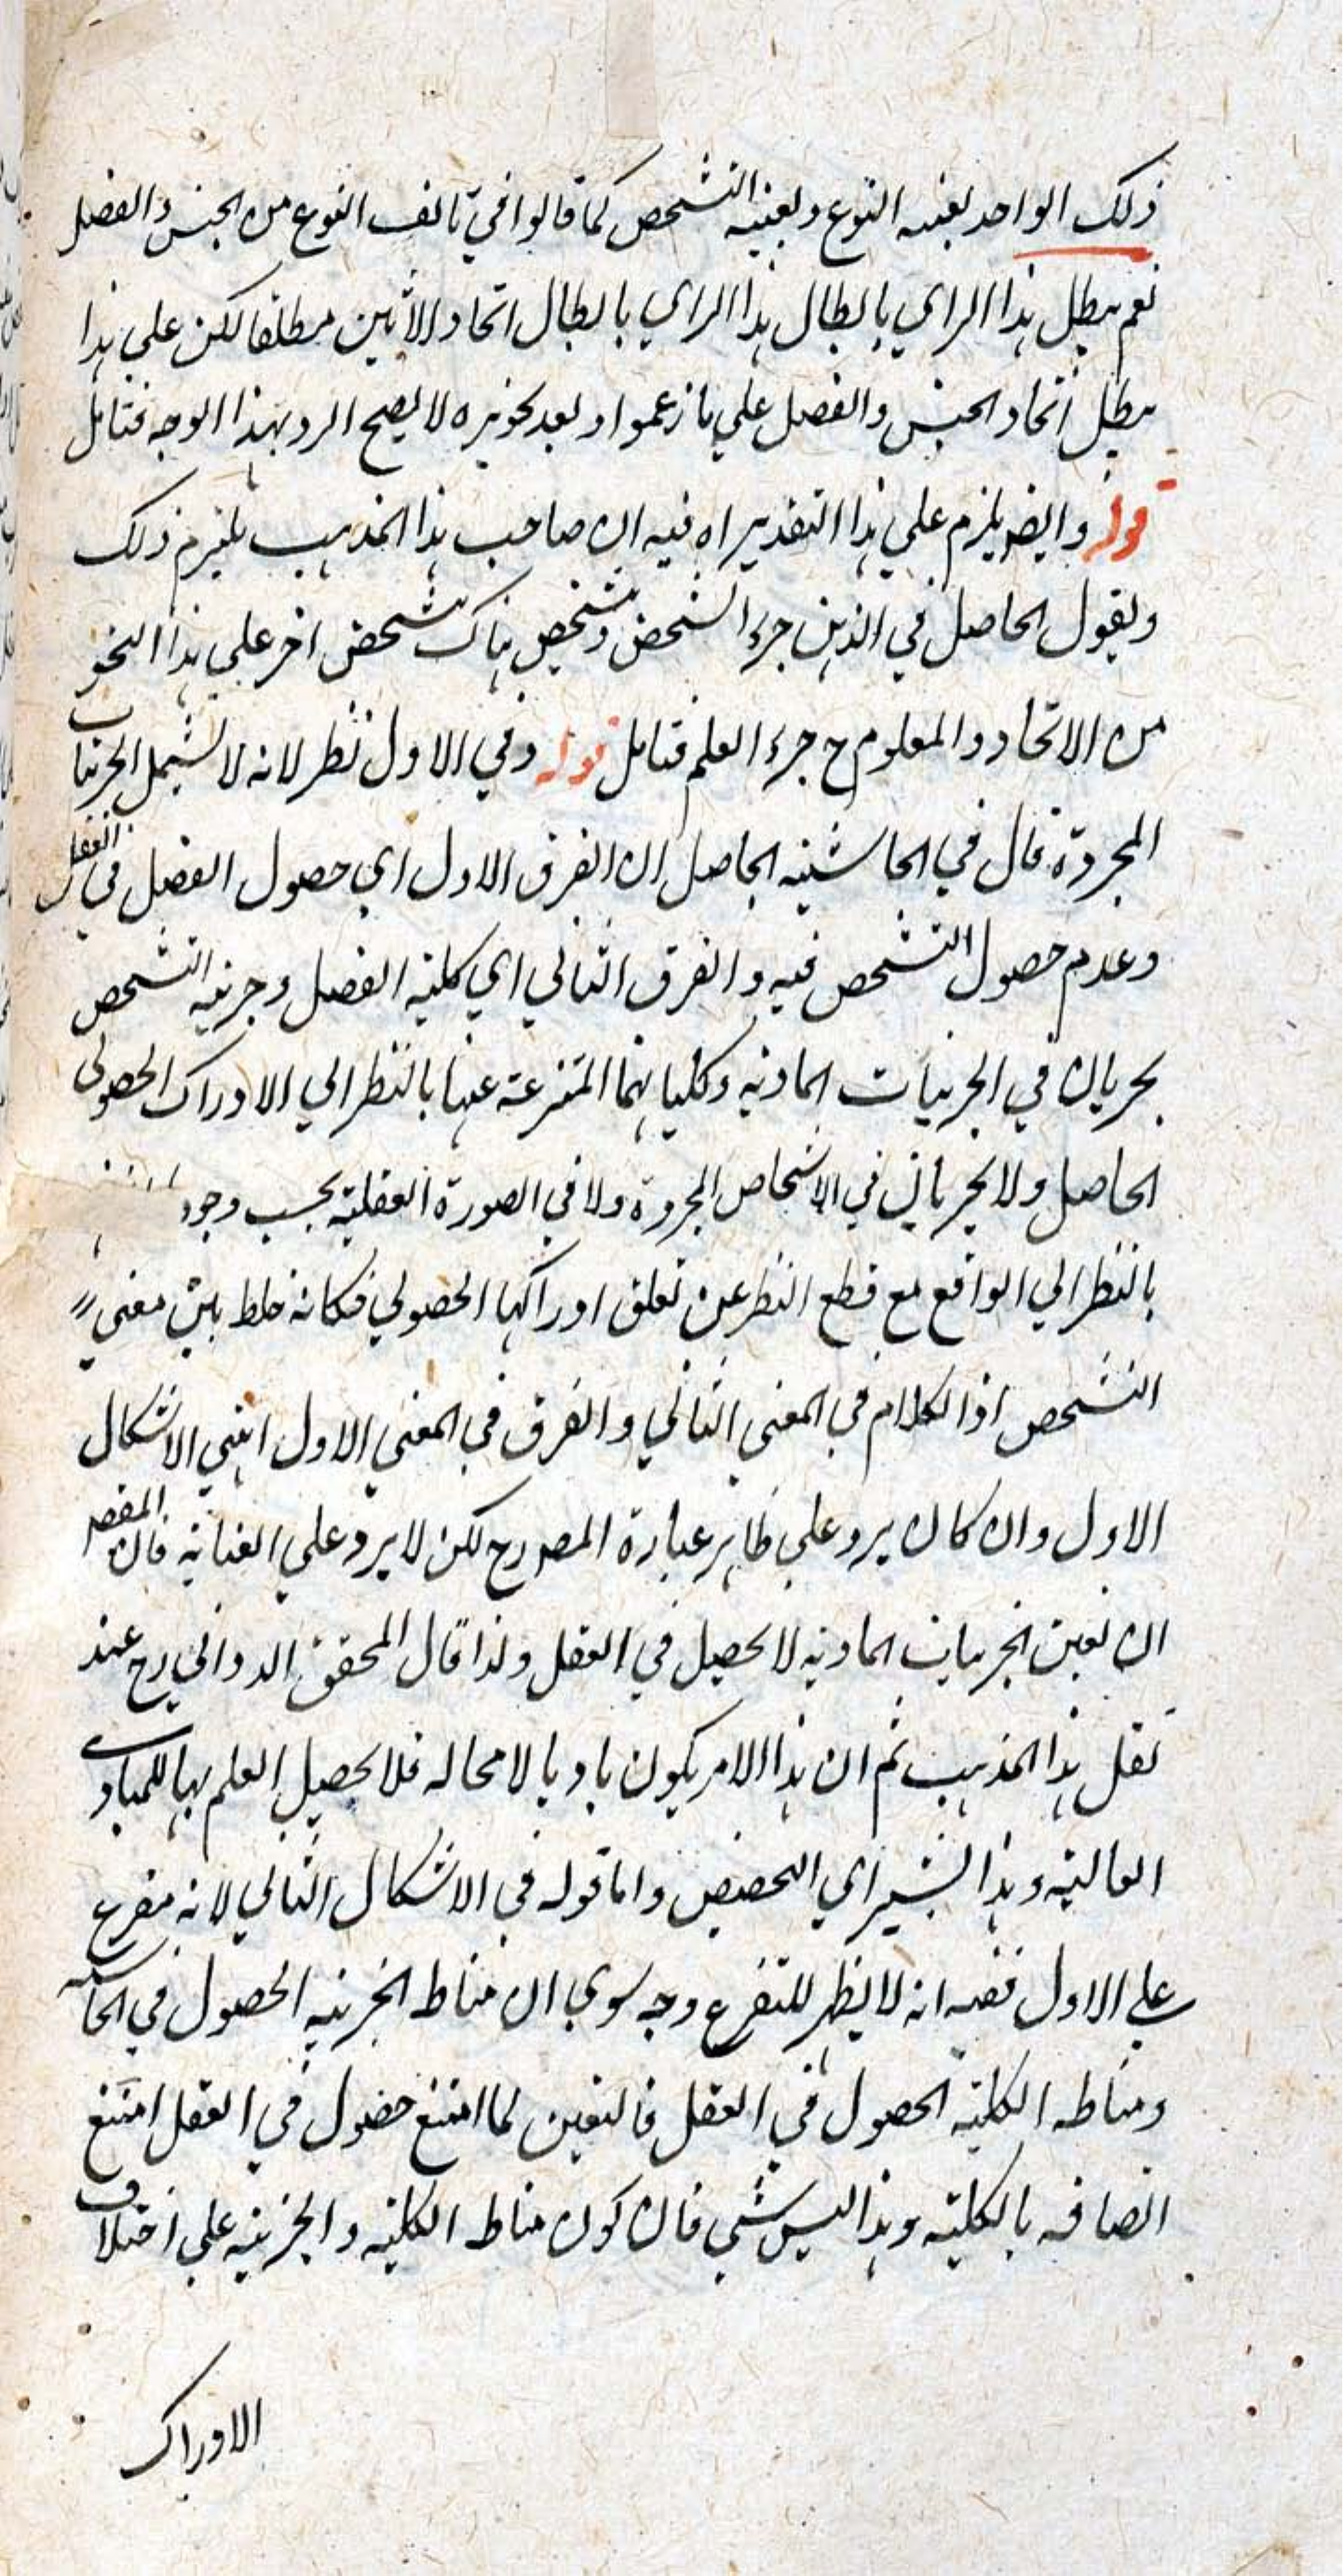 ذلك الواحد بعينه النوع وبعينه التشخص كما قالوا في تالف النوع من الجنس والفصل
نعم يبطل هذا الراي بابطال هذا الراي بابطال اتحاد الاثنين مطلقا لكن علي هذا
يبطل اتحاد الجنس والفصل علي ما زعموا وبعد تجويزه لا يصح الرد بهذا الوجه فتامل
قوله وايضا يلزم علي هذا التقدير اه فيه ان صاحب هذا المذهب يلتزم ذلك
ويقول الحاصل في الذهن جزء الشخص وتشخص هناك بتشخص اخر علي هذا النحو
من الاتحاد والمعلوم ح جزء العلم فتامل قوله وفي الاول نظر لانه لا يشمل الجزئيات
المجردة قال في الحاشية الحاصل ان الفرق الاول اي حصول الفصل في العقل
وعدم حصول التشخص فيه والفرق الثاني اي كلية الفصل وجزئية التشخص
يجريان في الجزئيات المادية وكلياتها المنتزعة عنها بالنظر الي الادراك الحصولي
الحاصل ولا يجريان في الاشخاص المجردة ولا في الصورة العقلية بحسب وجود
بالنظر الي الواقع مع قطع النظر عن تعلق ادراكها الحصولي فكانه خلط بين معني
التشخص اذ الكلام في المعني الثاني والفرق في المعني الاول انتهي الاشكال
الاول وان كان يرد علي ظاهر عبارة المصه رح لكن لا يرد علي العناية فان المقصه
ان تعين الجزئيات المادية لا يحصل في العقل ولذا قال المحقق الدواني رح عند
نقل هذا المذهب ثم ان هذا الامر يكون ماديا لا محاله فلا يحصل العلم بها للمبادي
العالية وهذا يشير اي التخصيص واما قوله في الاشكال الثاني لانه متفرع
علي الاول ففيه انه لا يظهر للتفرع وجه سوي ان مناط الجزئية الحصول في الحاسة
ومناطه الكلية الحصول في العقل فالتعين لما امتنع حصول في العقل امتنع
اتصافه بالكلية وهذا ليس بشي فان كون مناط الكلية والجزئية علي اختلاف
الادراك